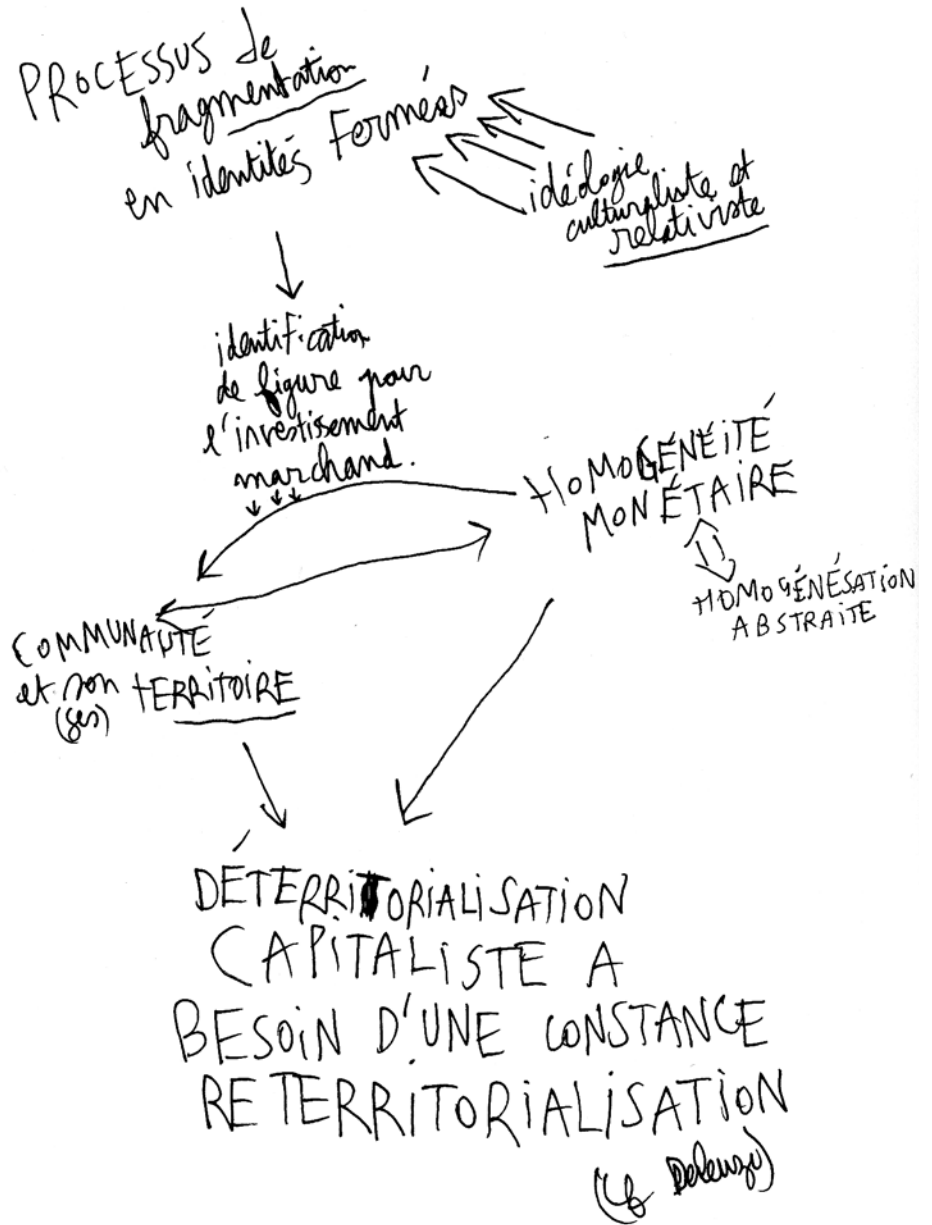 PROCESSUS de
fragmentation
en identités Fermées
idéologie
culturaliste et
relativiste
identification
de figure pour
l'investissement
marchand.
HOMOGÉNÉITÉ
MONÉTAIRE
HOMOGÉNÉSATION
ABSTRAITE
COMMUNAUTÉ
et son TERRITOIRE
(ses)
DÉTERRITORIALISATION
CAPITALISTE A
BESOIN D'UNE CONSTANCE
RETERRITORIALISATION
(cf Deleuze)